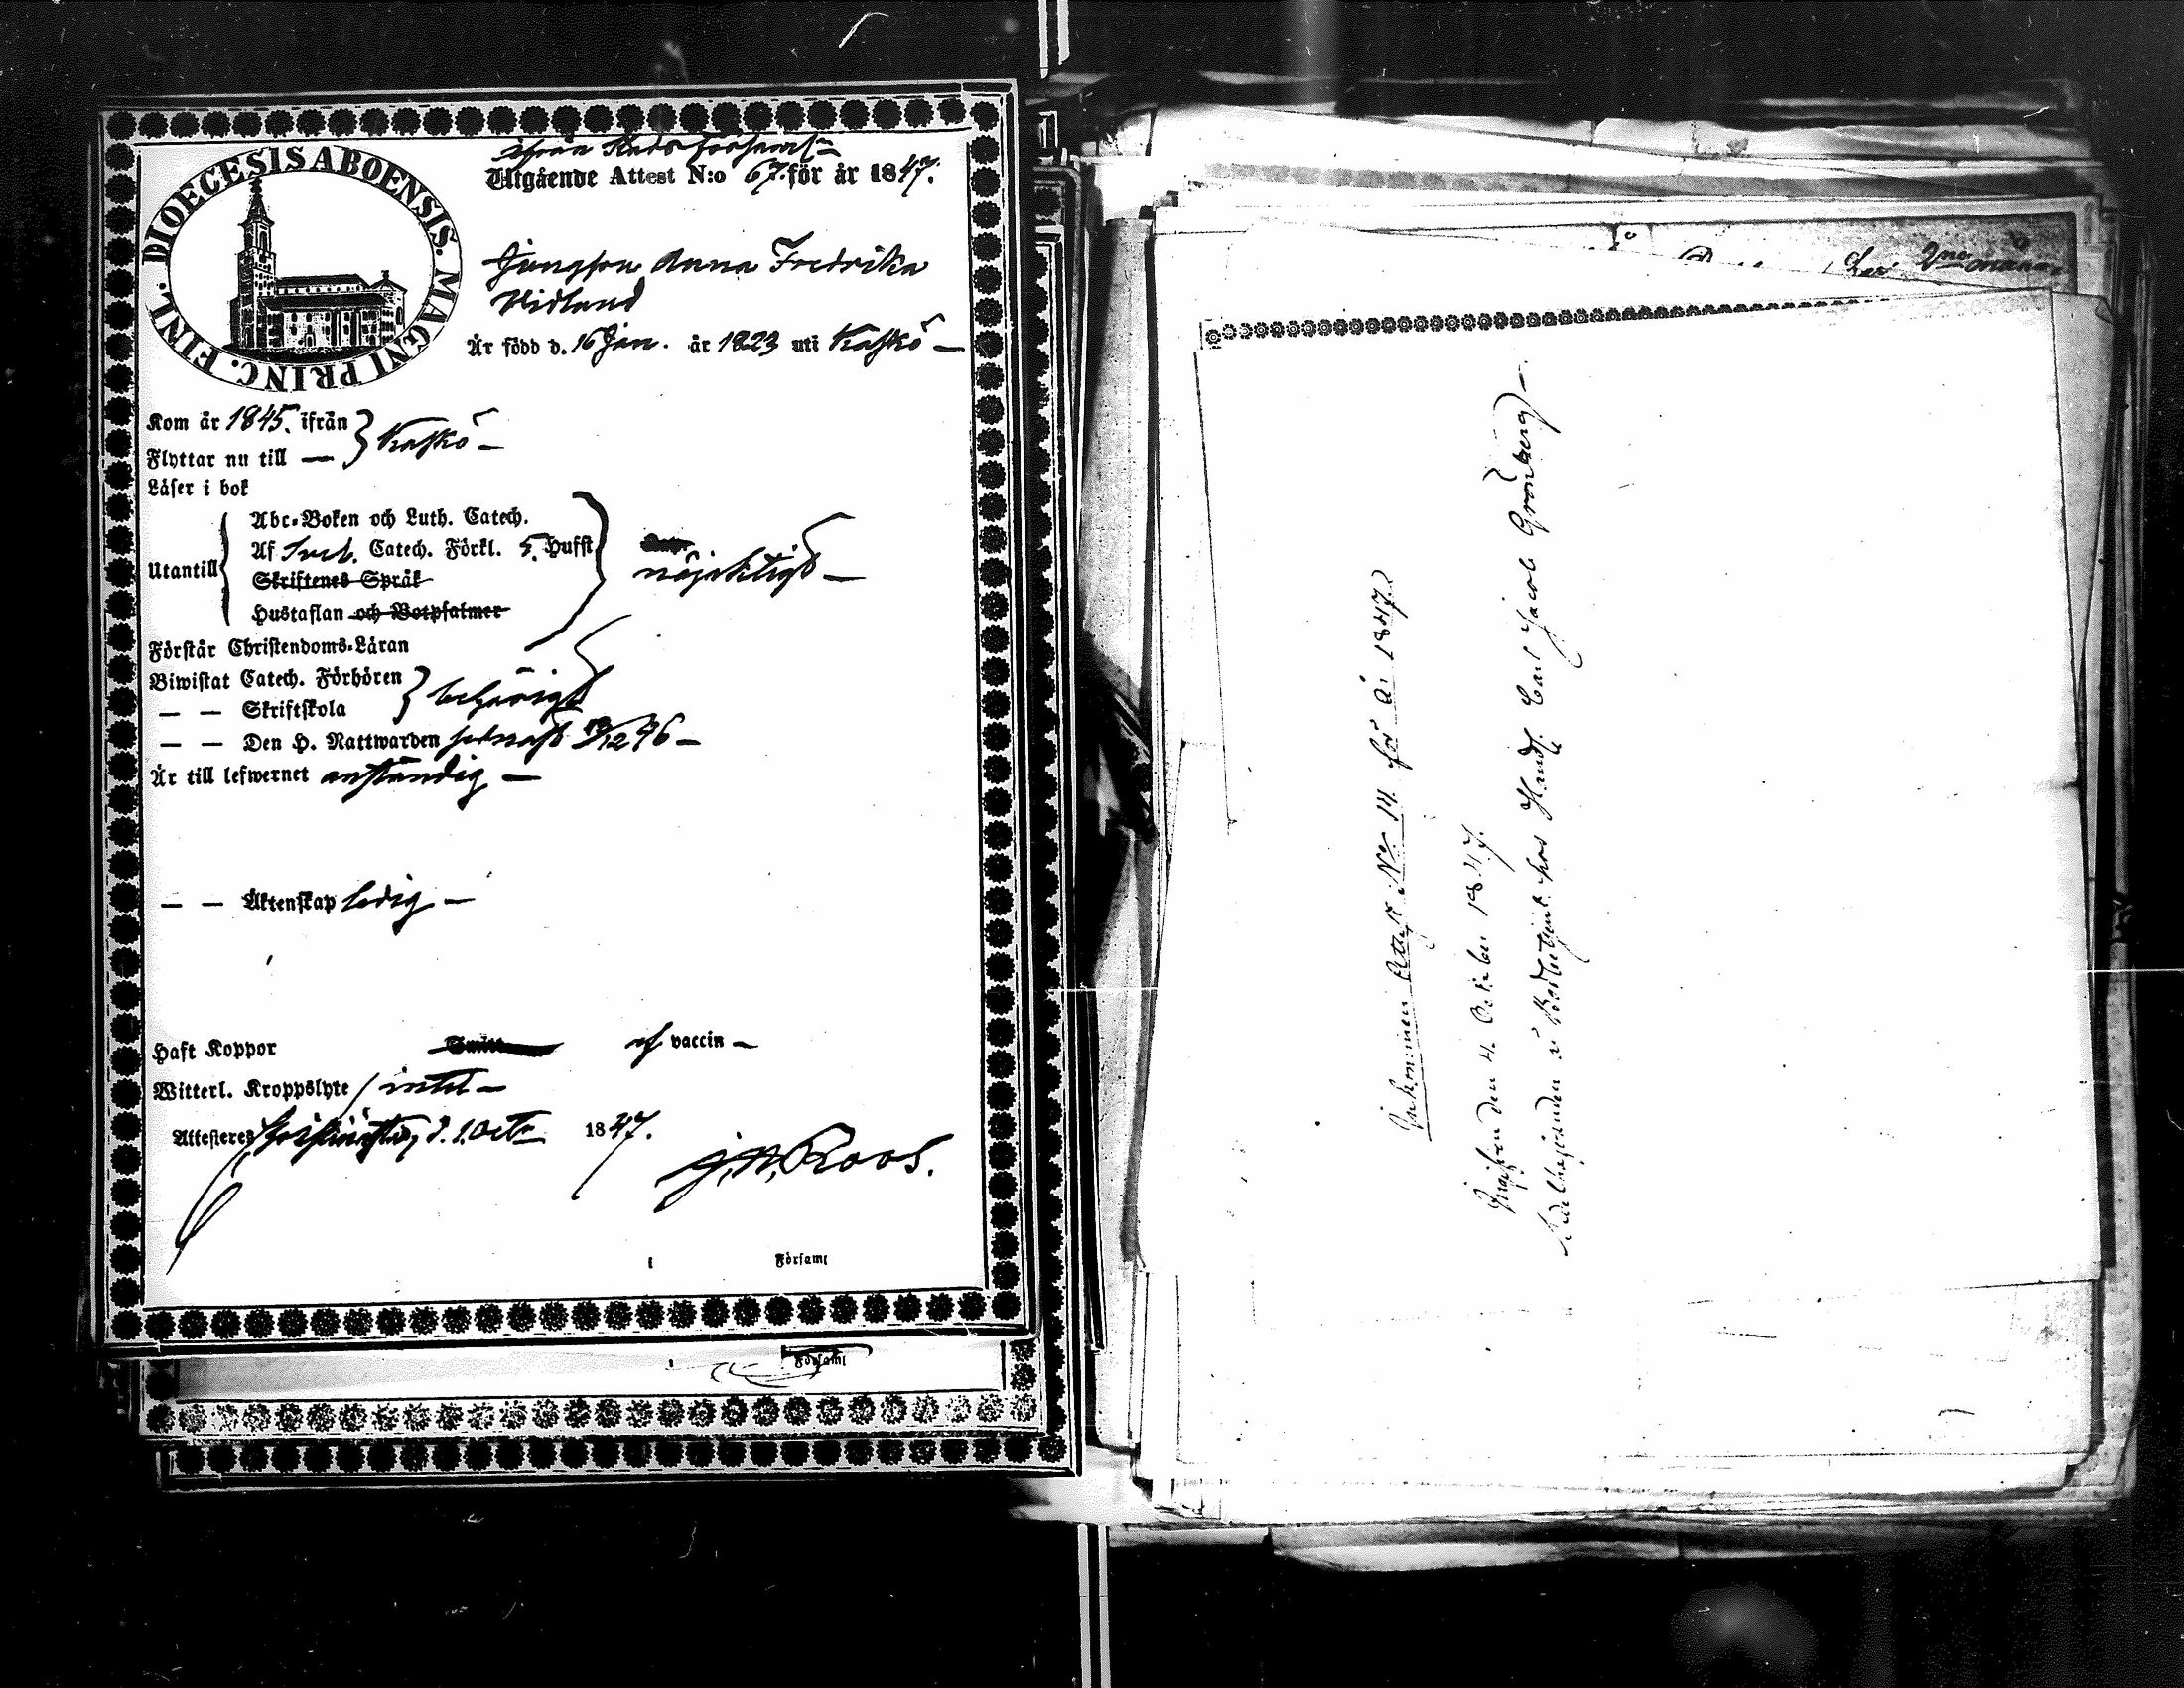 DIOECESIS ABOENSIS. MAGNI PRINC. FINL.
ifrån Stads församl:
Utgående Attest N:o 67. för år 1847.
Jungfru Anna Fredrika
Widlund
Är född d. 16 Jan. år 1823 uti Kaskö –
Kom år 1845. ifrån } Kaskö –
Flyttar nu till —
Läser i bok
Utantill
Abc-Boken och Luth. Catech.
Af Catech. Förkl. 5. Husst
Skriftenes Språk
Hustaflan och Botpsalmer
nöjaktigt –
Förstår Christendoms-Läran
Biwistat Catech. Förhören } behörigt
— — Skriftskola
— — Den H. Nattwarden sednast /12 46 –
Är till lefwernet anständig –
— — Äktenskap ledig –
Haft Koppor af vaccin –
Witterl. Kroppslyte intet –
Attesteras Christinestad, d. 1. Octr 1847.
J. N. Roos.
i Församl
Församl
Inkommen Attest No 14 för år 1847.
Ingifven den 4. October 1847.
Betjent hos Handl. Carl Jacob Grönberg –